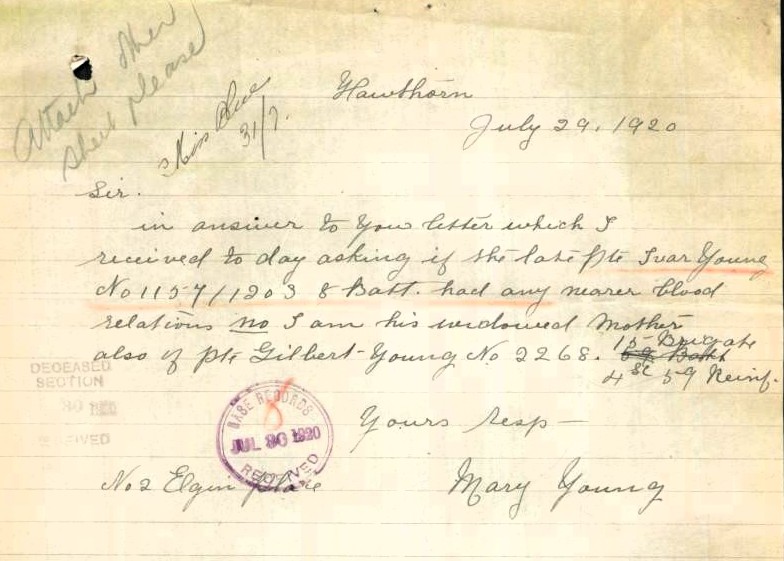 Attach other
sheet please
Miss
31/7.
Hawthorn
July 29. 1920
Sir.
in answer to You letter which I
received to day asking if the late pte Ivar Young
No 1157/1203 8 Batt. had any nearer blood
relations no I am his widowed Mother
also of pte Gilbert Young No 2268. 15 Brigate
4 59 Reinf.
Yours resp
DECEASED
SECTION
BASE RECORDS
JUL 30 1920
RECEIVED
8
No 2 Elgin place
Mary Young